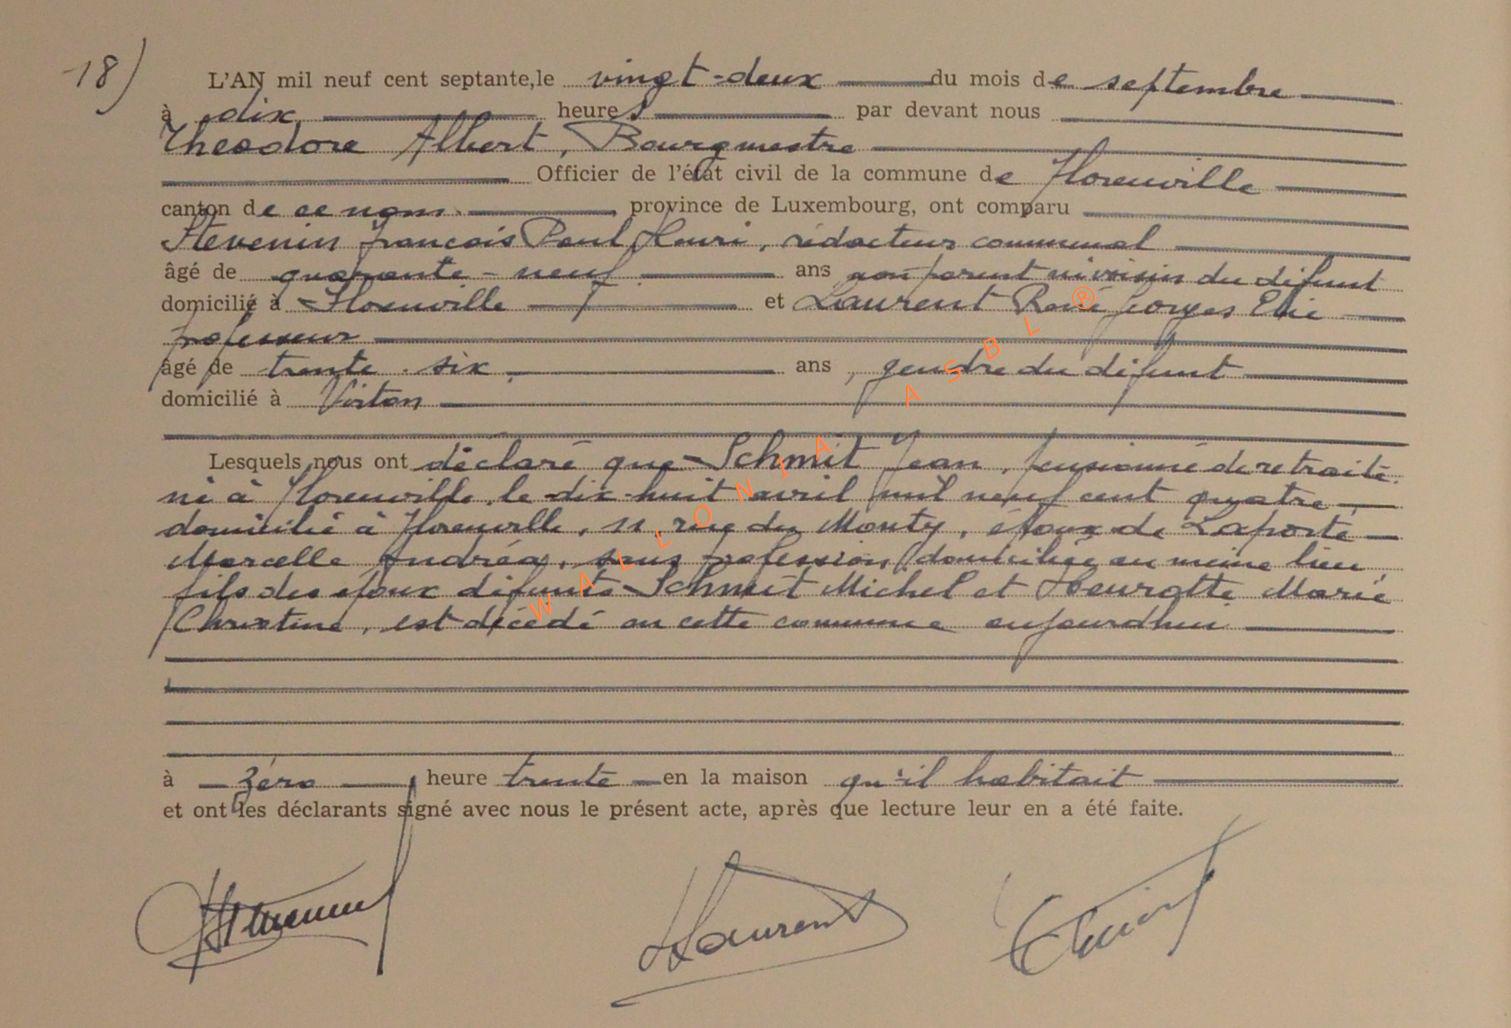 18)
L'AN mil neuf cent septante, le vingt-deux du mois de septembre
à dix heures par devant nous
Théodore Albert, Bourgmestre
Officier de l'état civil de la commune de Florenville
canton de ce nom. province de Luxembourg, ont comparu
Stevenin François Paul Henri, rédacteur communal
âgé de quarante-neuf ans non parent ni voisin du défunt
domicilié à Florenville et Laurent René Georges Elie
professeur
âgé de trente-six ans, gendre du défunt
domicilié à Virton
Lesquels nous ont déclaré que Schmit Jean, pensionné de retraite
né à Florenville, le dix-huit avril mil neuf cent quatre
domicilié à Florenville, 11 rue du Monty, époux de Laporte
Marcelle Andréa, sans profession, domiciliée au même lieu
fils des époux défunts Schmit Michel et Heurotte Marie
Christine, est décédé en cette commune aujourd'hui
à zéro heure trente en la maison qu'il habitait
et ont les déclarants signé avec nous le présent acte, après que lecture leur en a été faite.
Laurent
WALLONIA ASBL ®